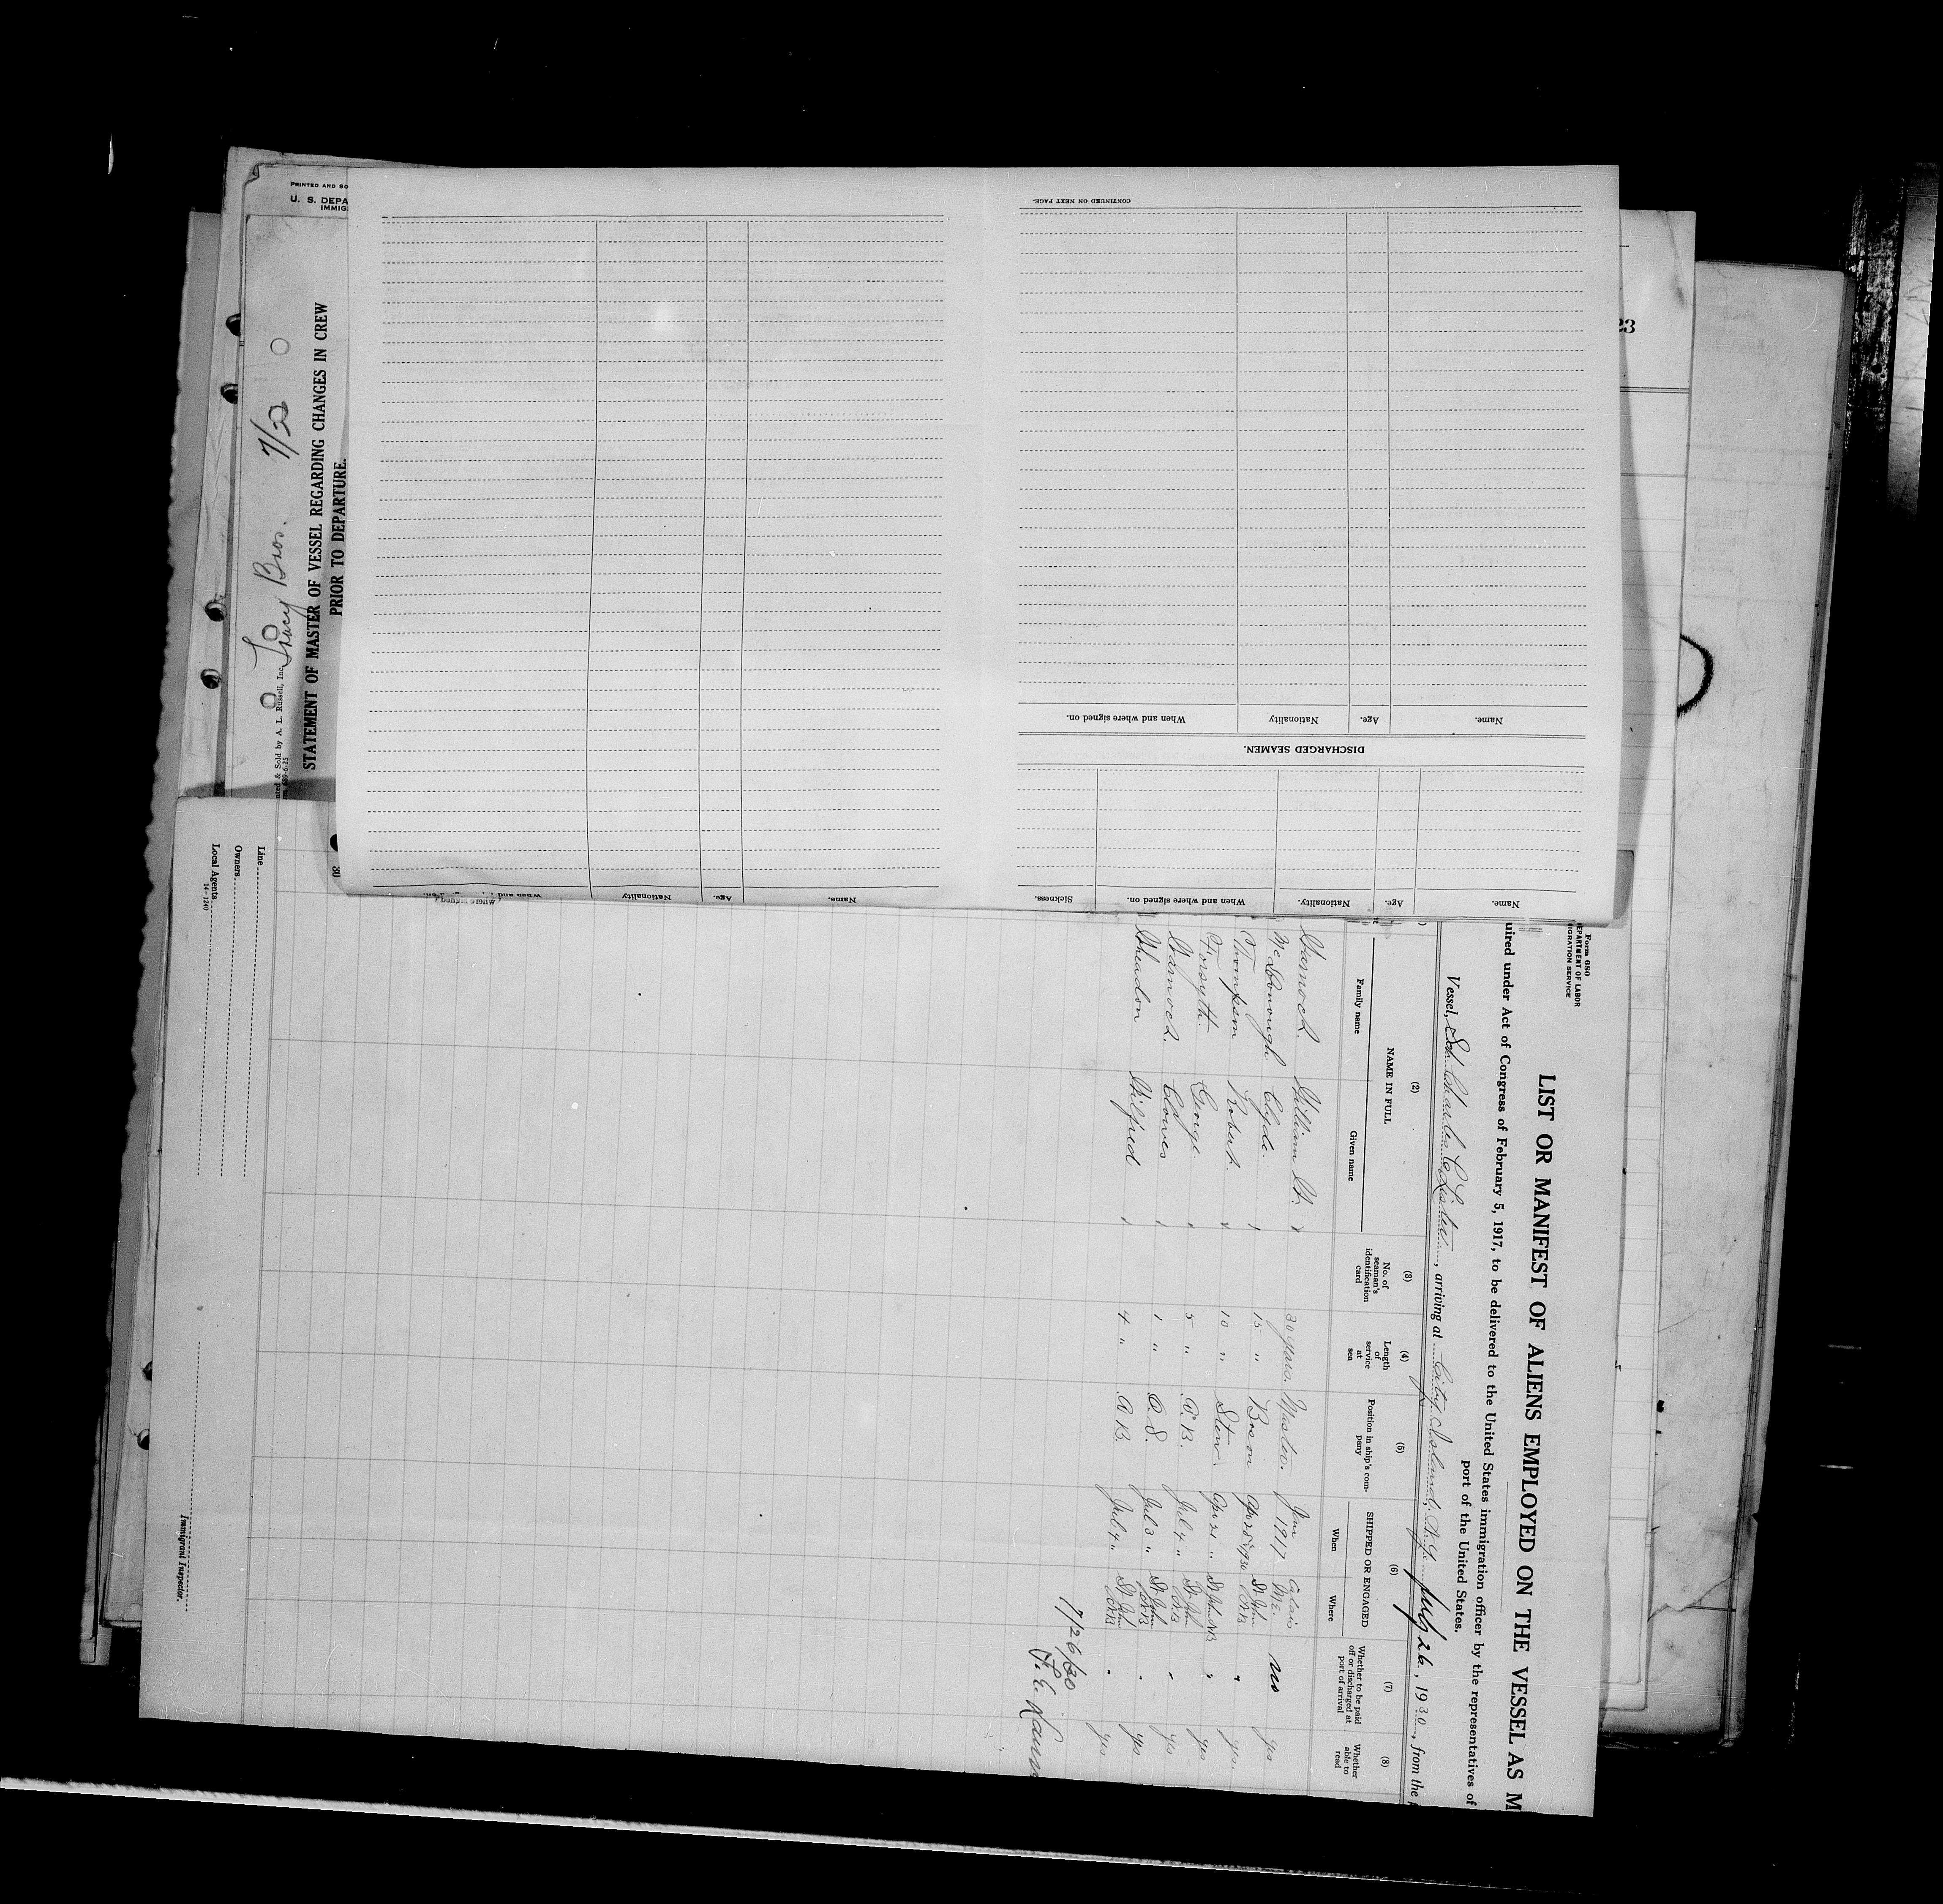 PRINTED AND SO
U. S. DEPA
IMMIG
Tracy Bros. 7/22
ted & Sold by A. L. Russell, Inc.
STATEMENT OF MASTER OF VESSEL REGARDING CHANGES IN CREW
PRIOR TO DEPARTURE.
30
23
Name. Age. Nationality. When and where signed on. Sickness.
DISCHARGED SEAMEN.
Name. Age. Nationality When and where signed on.
CONTINUED ON NEXT PAGE.
Name. Age. Nationality
Form 680
EPARTMENT OF LABOR
IGRATION SERVICE
LIST OR MANIFEST OF ALIENS EMPLOYED ON THE VESSEL AS M
uired under Act of Congress of February 5, 1917, to be delivered to the United States immigration officer by the representatives of
port of the United States.
Vessel, Sch Charles C Lister, arriving at City Island, N.Y. July 26, 1930, from the
(2) (3) (4) (5) (6) (7) (8)
NAME IN FULL
Family name Given name
No. of seaman's identification card
Length of service at sea
Position in ship's company
SHIPPED OR ENGAGED
When Where
Whether to be paid off or discharged at port of arrival
Whether able to read
William 30 years Master. 1917 Calais Me. no yes
McDonough Clyde. 15 " Boson Apr 28 1930 St John NB " yes
Thompson Robert. 10 " Stew. Apr 21 " St John NB " yes
Forsyth. George. 5 " A.B. Jul 4 " St John NB " yes
Warnock. Clowes 1 " O.S. Jul 3 " St John NB " yes
Wheadon Wilfred 4 " A.B. Jul 4 " St John NB " yes
7/26/30
F. E.
Line
Owners
Local Agents
14—1240
Immigrant Inspector.